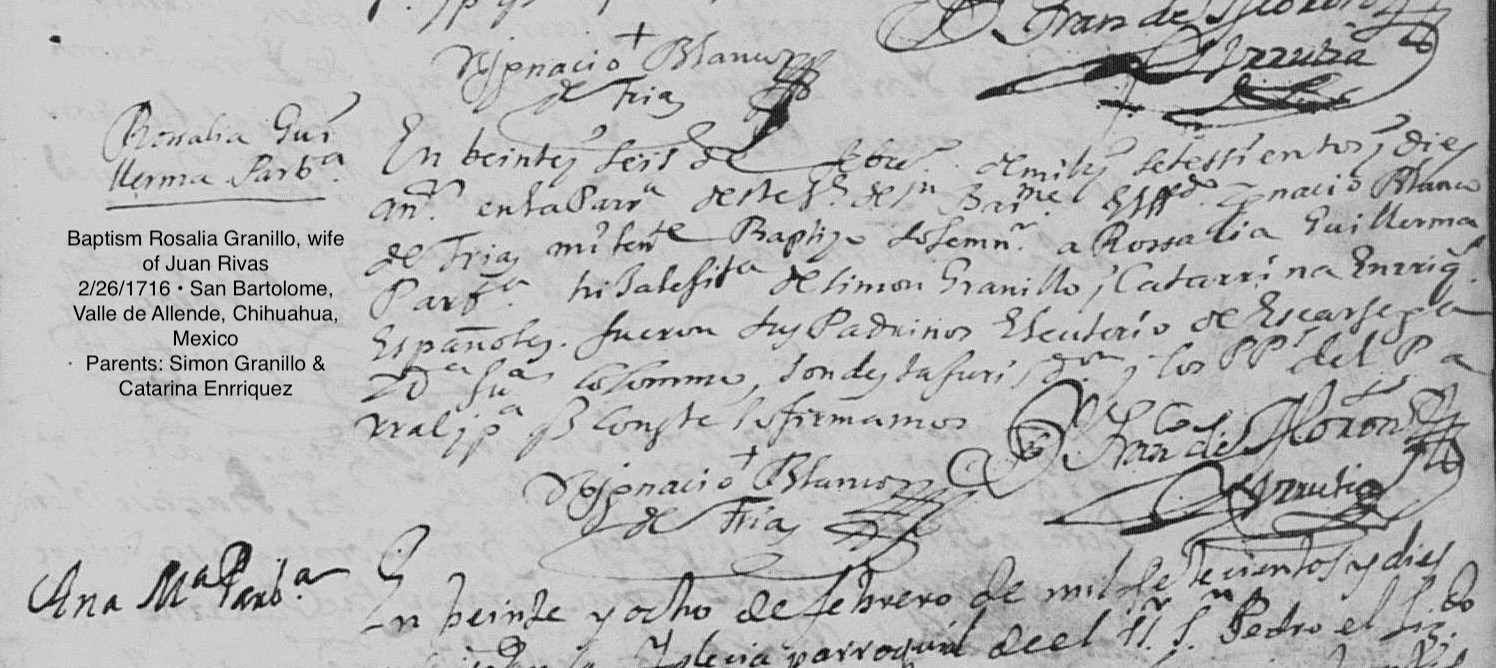 D. Fran de
Ygnacio Blanco
Urrutia
de Frias
Rosalia Gui
llerma Parb.a
En beintey seis de febr.o demily setessientos, y dies
an.s enla Parr.a deste P.e de Sn Bar.me El Ygnacio Blanco
de Frias mi ten.te Baptizo Solemn.e a Rossalia Guillerma
Parb.a hija lexit.a de Simon Granillo, y Catarrina Enrriq.s
Españoles. fueron sus Padrinos Eleuterio de Escarsega
y los PP.s del Pa
rral y p.a q.e Conste lo firmamos
Fran de
Ygnacio Blanco
Urrutia
de Frias
Baptism Rosalia Granillo, wife
of Juan Rivas
2/26/1716 • San Bartolome,
Valle de Allende, Chihuahua,
Mexico
Parents: Simon Granillo &
Catarina Enrriquez
Ana M.a Parb.a
En beinte y ocho de febrero de mil setecientos y dies
Iglecia parroquial de el S.r Sn Pedro el